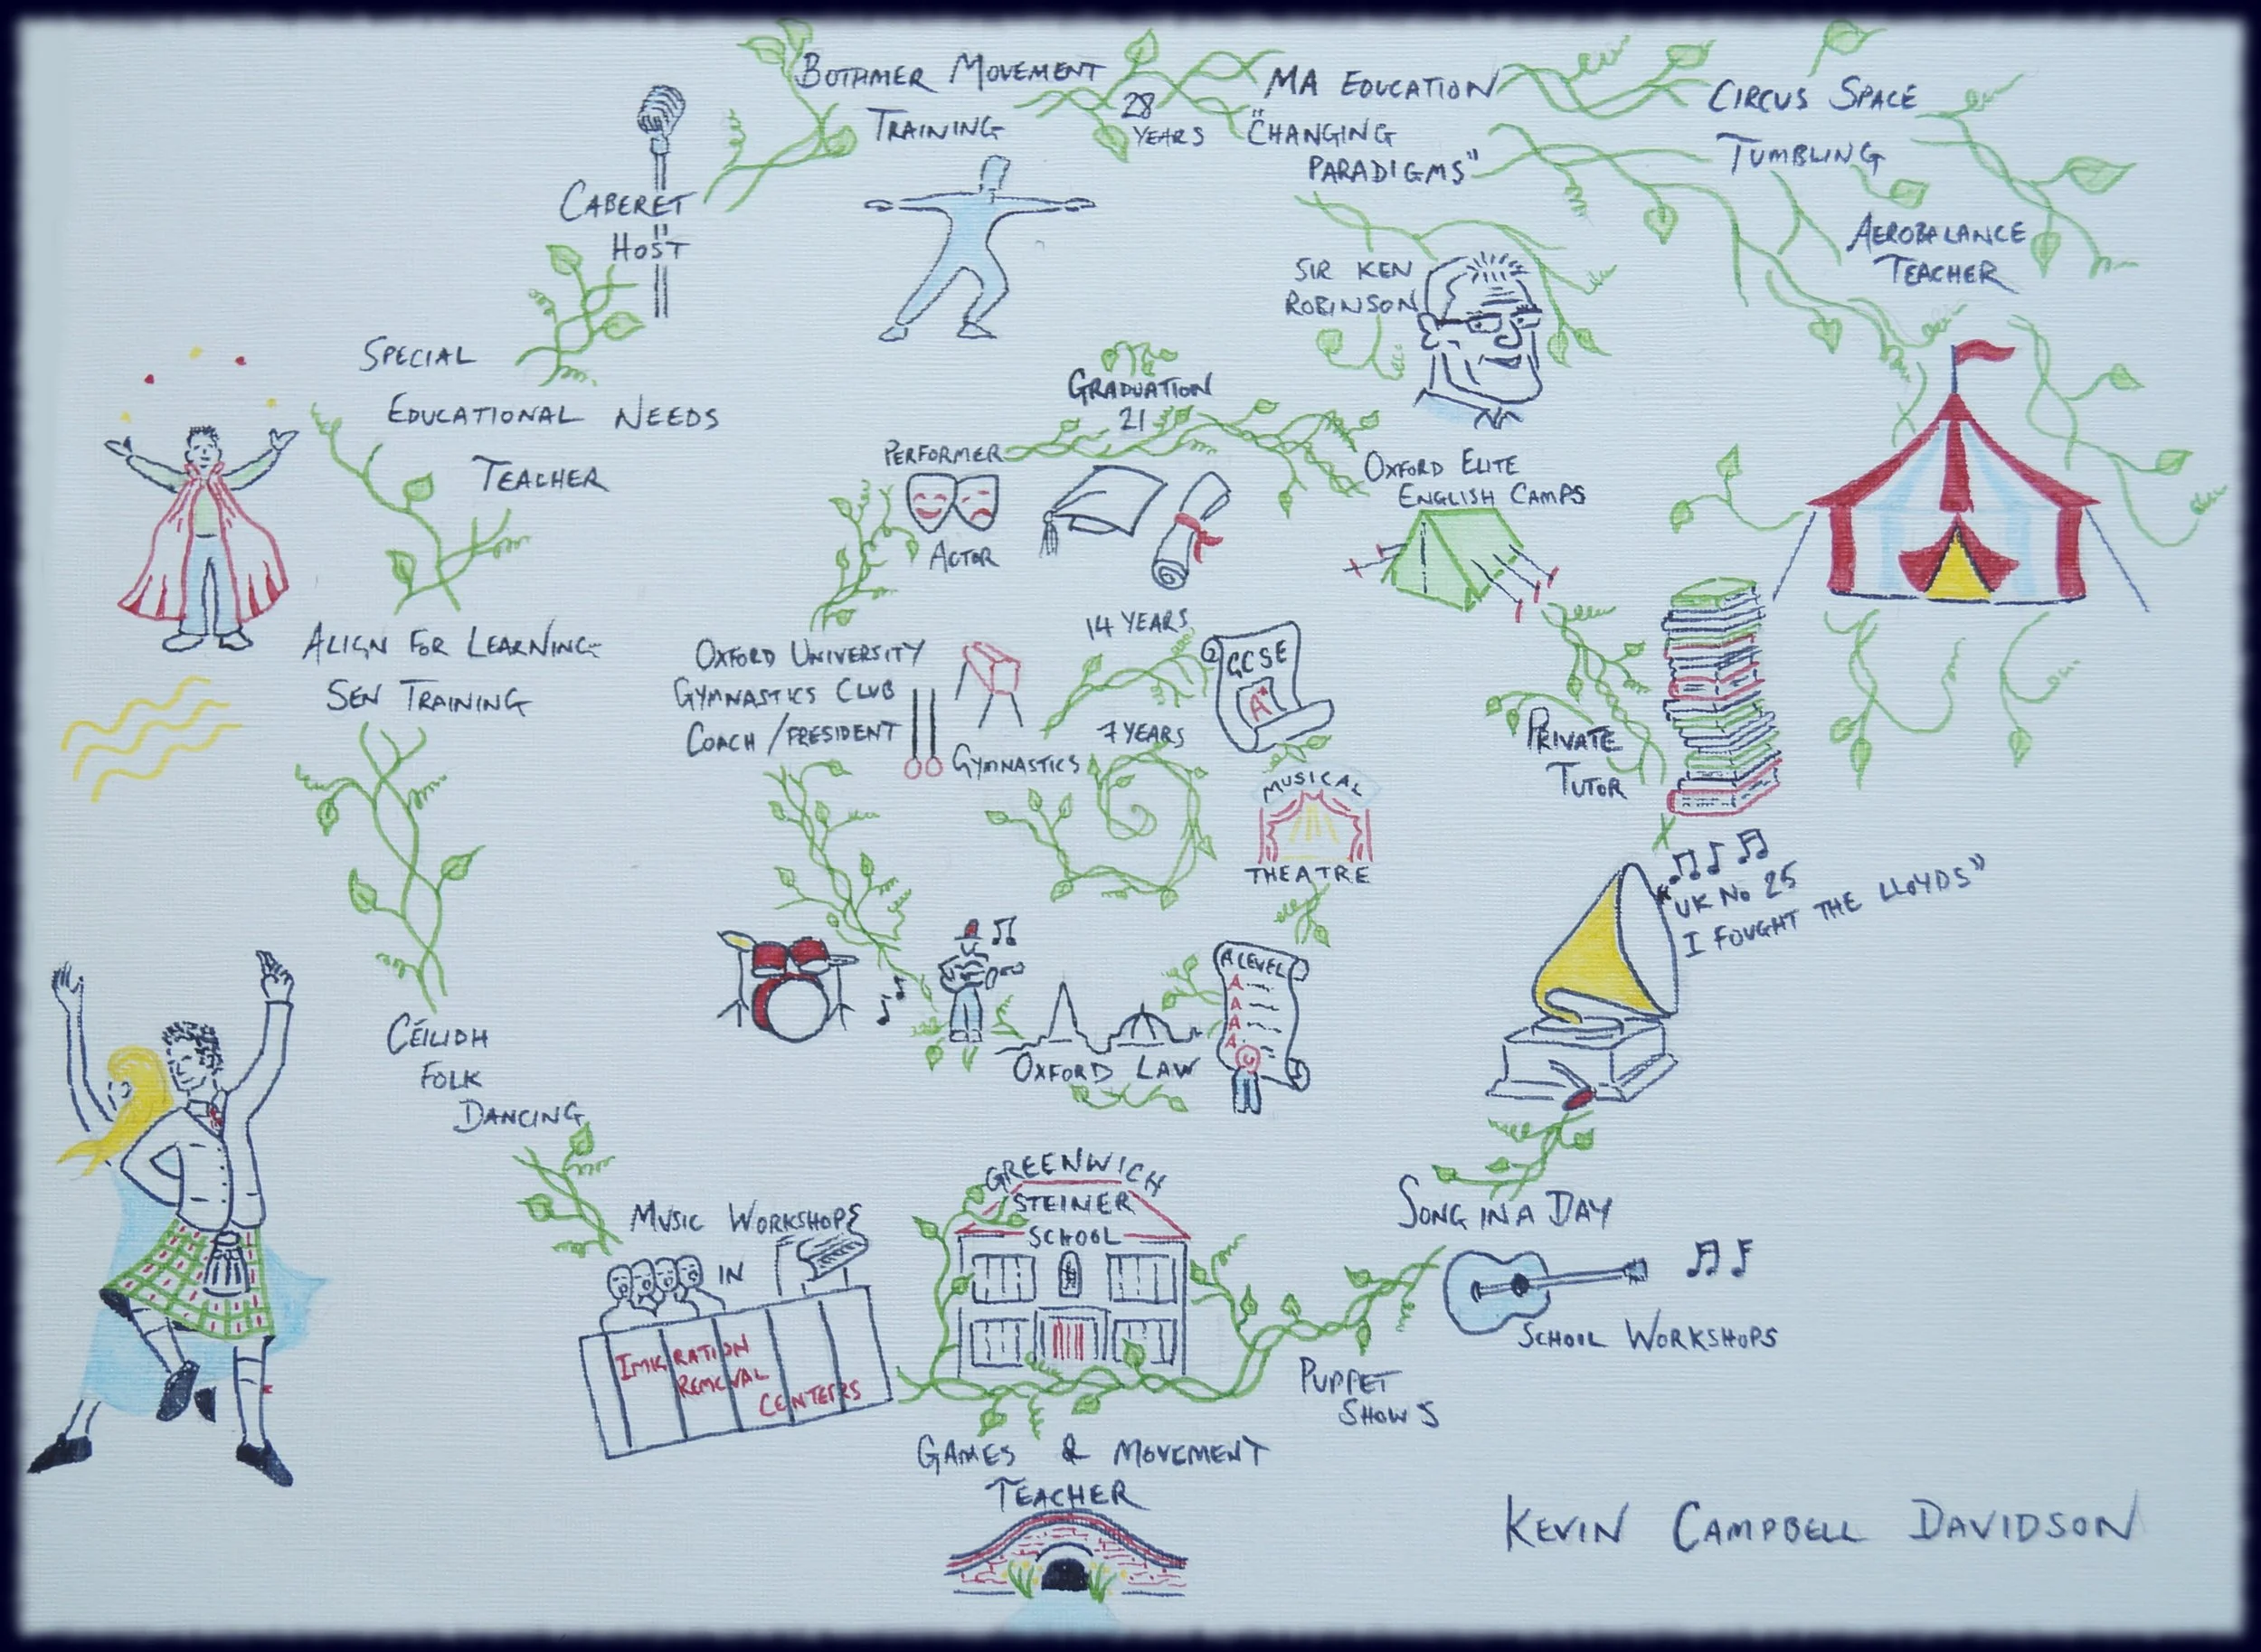 BOTHMER MOVEMENT
TRAINING
28
YEARS
MA EDUCATION
"CHANGING
PARADIGMS"
CIRCUS SPACE
TUMBLING
AEROBALANCE
TEACHER
CABERET
HOST
SIR KEN
ROBINSON
SPECIAL
EDUCATIONAL NEEDS
TEACHER
GRADUATION
21
PERFORMER
ACTOR
OXFORD ELITE
ENGLISH CAMPS
ALIGN FOR LEARNING
SEN TRAINING
OXFORD UNIVERSITY
GYMNASTICS CLUB
COACH / PRESIDENT
GYMNASTICS
14 YEARS
GCSE
A*
7 YEARS
MUSICAL
THEATRE
PRIVATE
TUTOR
"UK No 25
I FOUGHT THE LLOYDS"
A LEVEL
A
A
A
A
OXFORD LAW
CÉILIDH
FOLK
DANCING
MUSIC WORKSHOPS
IN
IMIGRATION
REMOVAL
CENTERS
GREENWICH
STEINER
SCHOOL
SONG IN A DAY
SCHOOL WORKSHOPS
PUPPET
SHOWS
GAMES & MOVEMENT
TEACHER
KEVIN CAMPBELL DAVIDSON